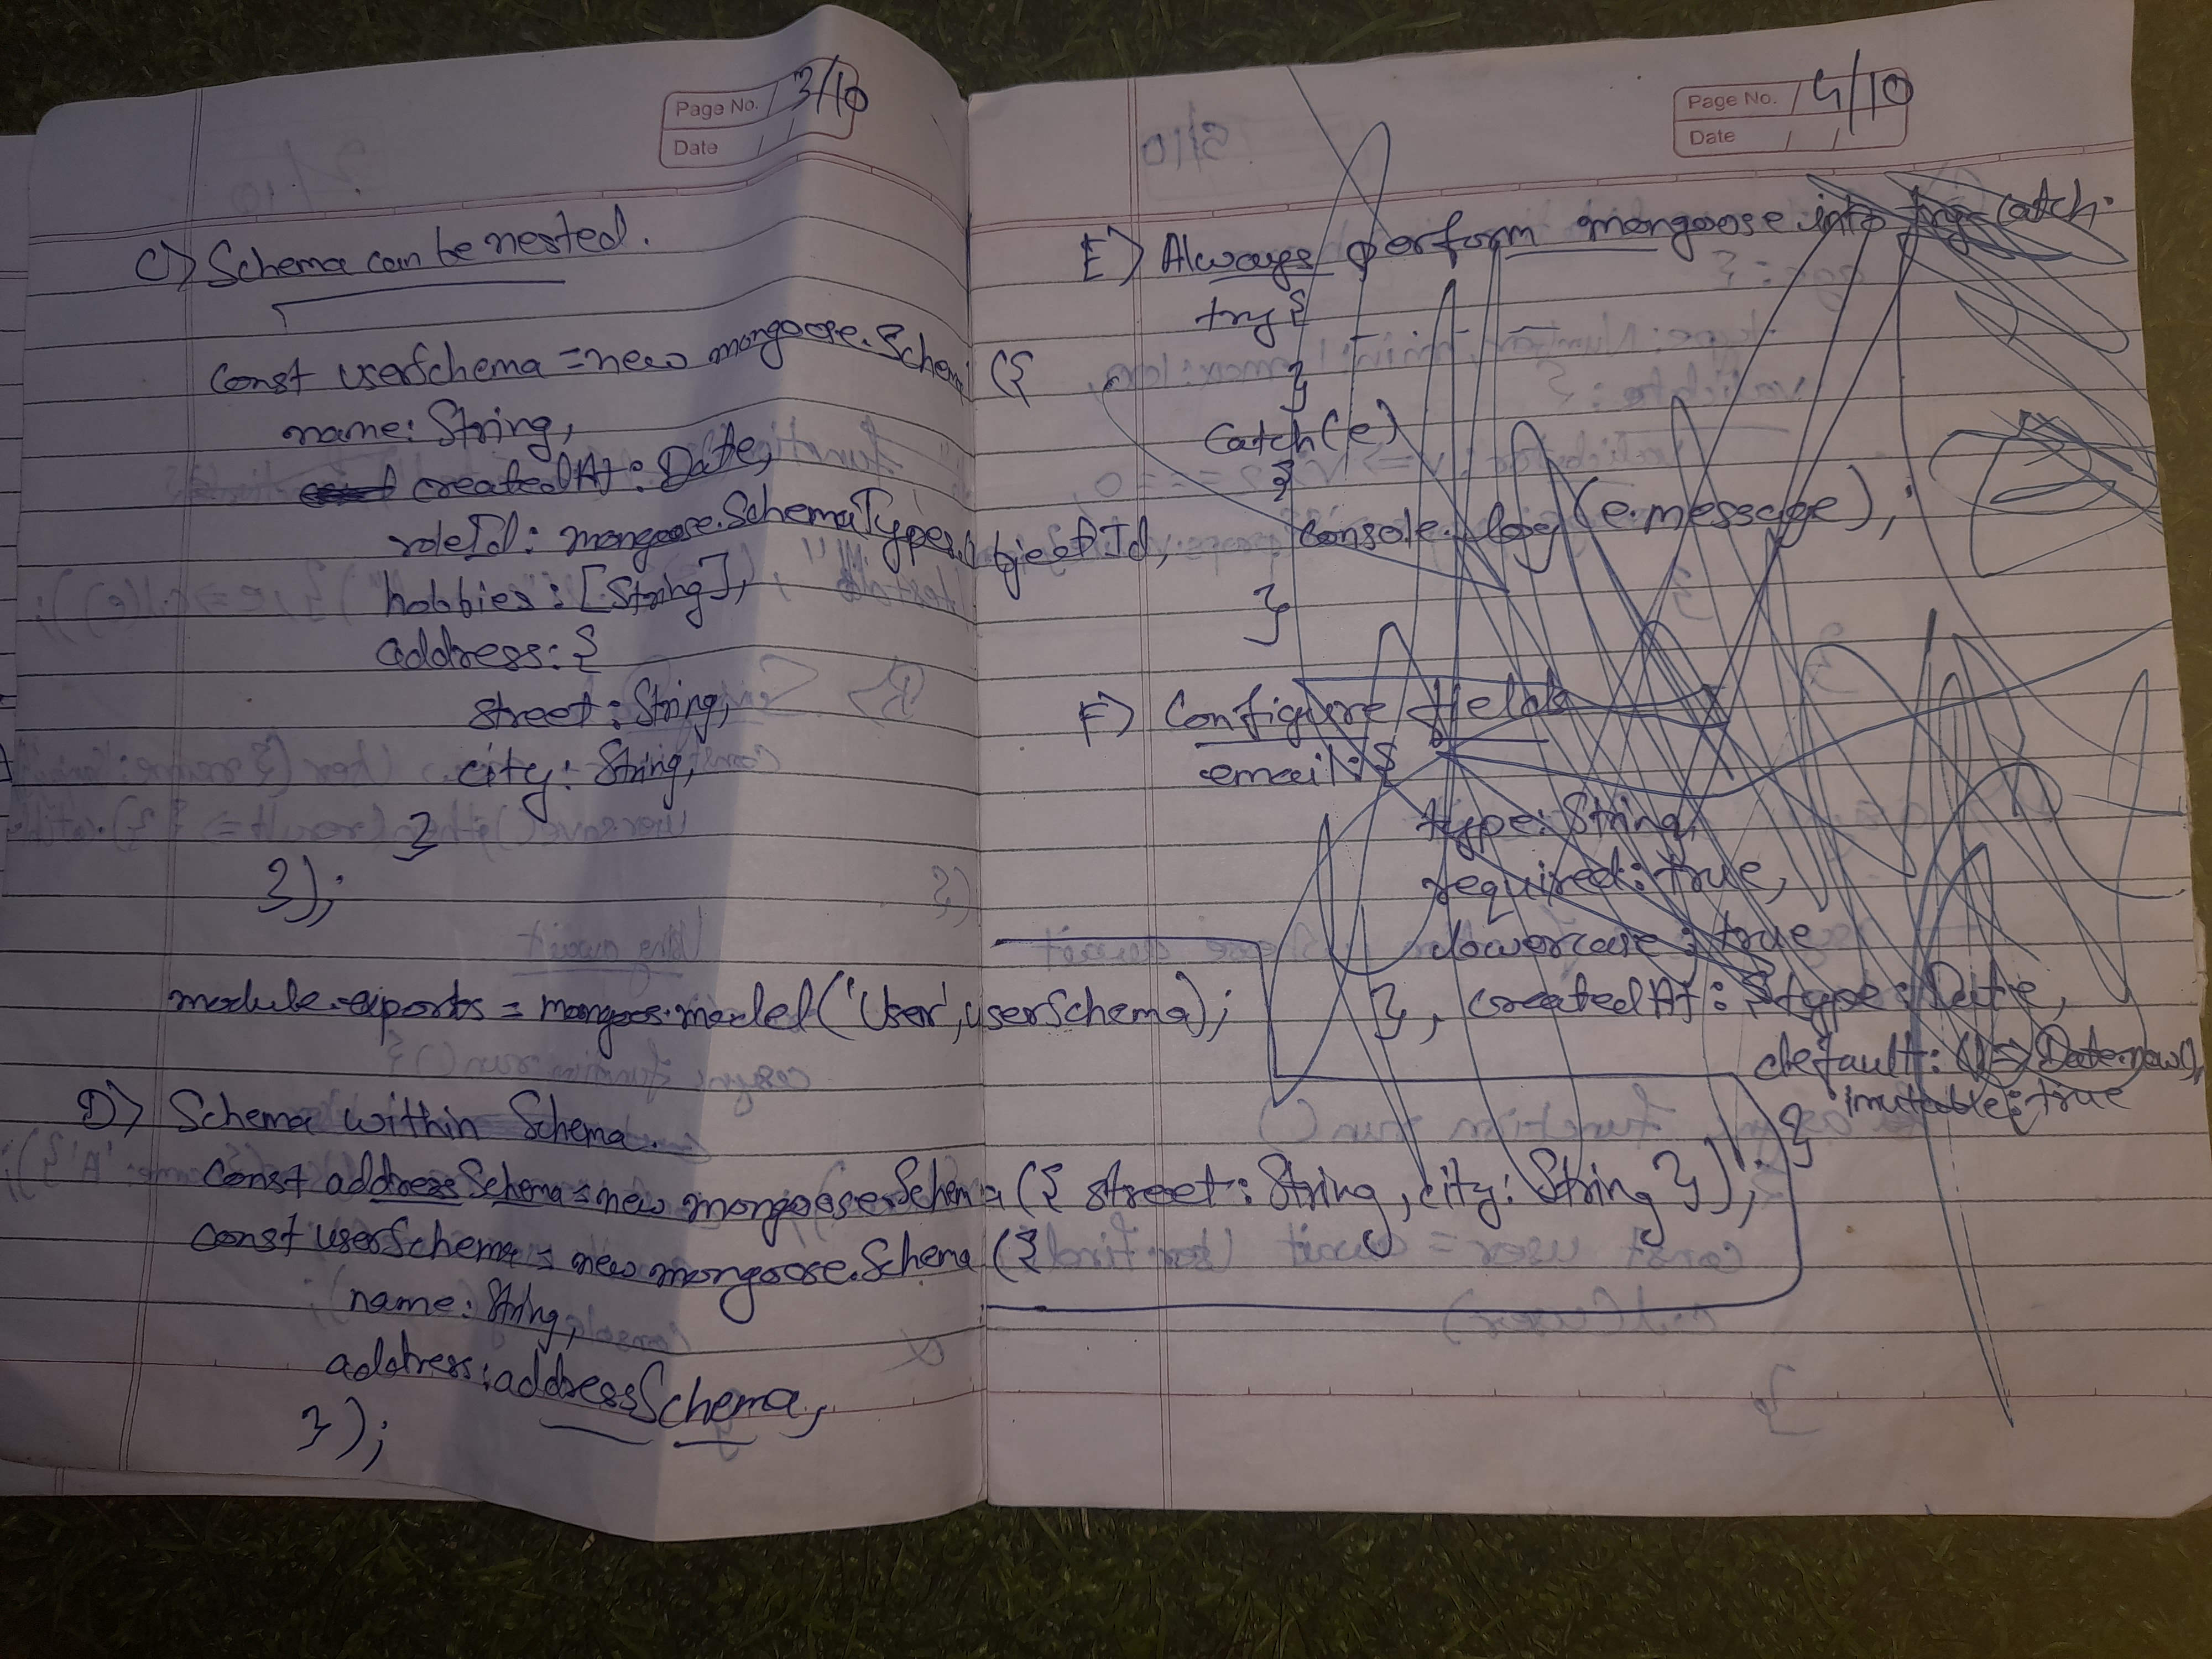 Page No. 3/10
Date / /
C) Schema can be nested.
const userSchema = new mongoose.Schema ({
name: String,
createdAt: Date,
roleId: mongoose.SchemaTypes.ObjectId,
hobbies: [String],
address: {
street: String,
city: String,
}
});
module.exports = mongoos.model('User', userSchema);
D) Schema within Schema.
const addressSchema = new mongoose.Schema ({ street: String, city: String });
const userSchema = new mongoose.Schema ({
name: String,
address: addressSchema,
});
Page No. 4/10
Date / /
E) Always perform mongoose into try-catch.
try {
}
catch(e)
{
console.log(e.message);
}
F) Configure fields
email: {
type: String,
required: true,
lowercase: true
}, createdAt: { type: Date,
default: () => Date.now(),
imutable: true
}